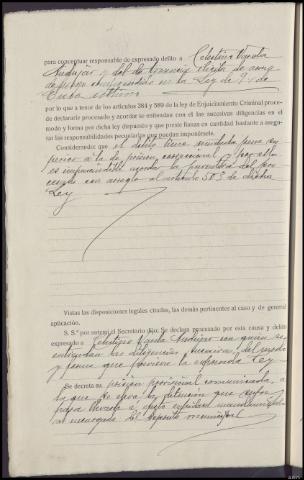 para conceptuar responsable de expresado delito a Celestino Varela
Andújar y del de tenencia ilícita de arma
de fuego comprendido en la Ley de 9 de
Enero último
por lo que a tenor de los artículos 384 y 589 de la ley de Enjuiciamiento Criminal proce-
de declararle procesado y acordar se entiendan con él las sucesivas diligencias en el
modo y forma por dicha ley dispuesto y que preste fianza en cantidad bastante a asegu-
rar las responsabilidades pecuniarias que puedan imponérsele.
Considerando: que el delito tiene señalada pena su
perior a la de prisión correccional y por ello
es imprescindible acordar la prisión del pro
cesado con arreglo al artículo 503 de dicha
Ley
Vistas las disposiciones legales citadas, las demás pertinentes al caso y de general
aplicación.
S. S.ª por ante mí el Secretario dijo: Se declara procesado por esta causa y delito
expresado a Celestino Varela Andújar con quien se
entiendan las diligencias sucesivas, del modo
y forma que previene la expresada Ley
Se decreta su prisión provisional comunicada, a
la que se eleva la detención que sufre
para llevarla a efecto expídase mandamiento
al encargado del depósito municipal